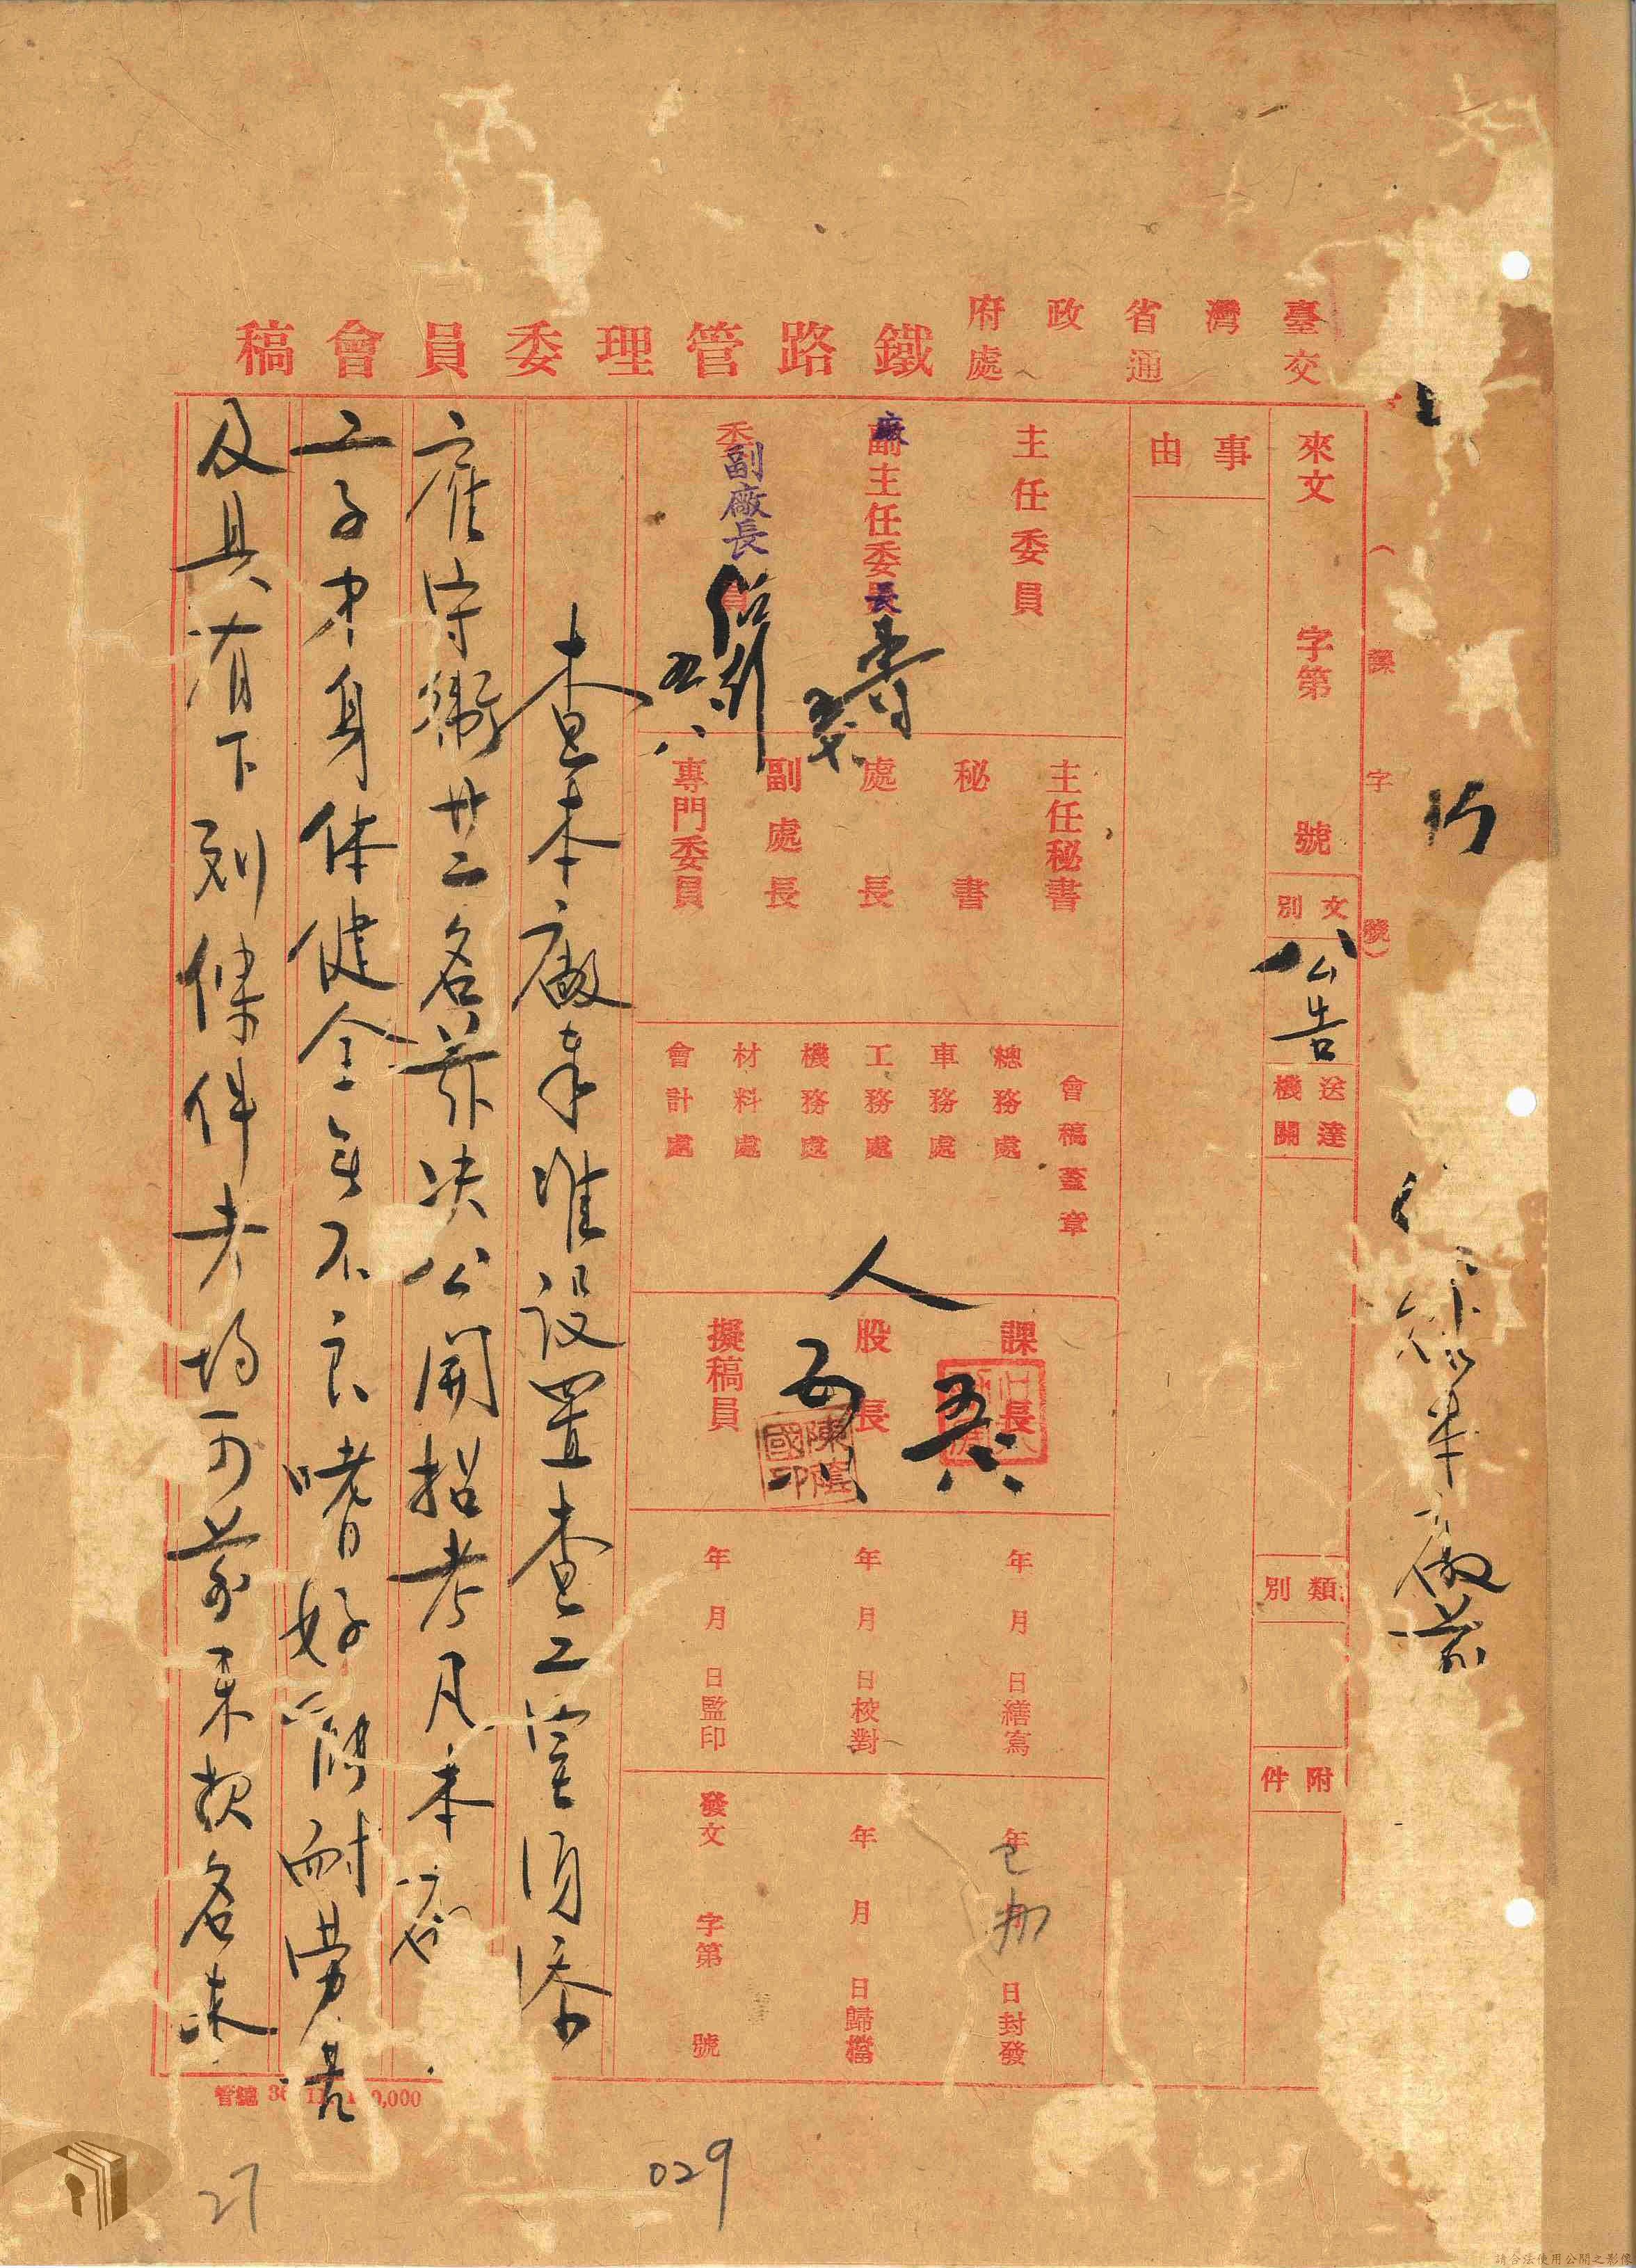 臺灣省政府交通處
鐵路管理委員會稿
（課字號）
來文 字第 號
文別
公告
送達機關
類別
附件
事由
主任委員
廠
副主任委員
長
委員
副廠長
五
八
主任秘書
秘書
處長
副處長
專門委員
會稿蓋章
總務處
車務處
工務處
機務處
材料處
會計處
人
課長
股長
擬稿員
陳
國印
年 月 日繕寫
年 月 日校對
年 月 日監印
年 月 日封發
年 月 日歸檔
發文 字第 號
已辦
查本廠奉准設置查工室須添
雇守衛廿二名茲決公開招考凡本廠
工子弟身体健全無不良嗜好能耐勞苦
及具有下列條件者均可前來報名
029
27
請合法使用公開之影像